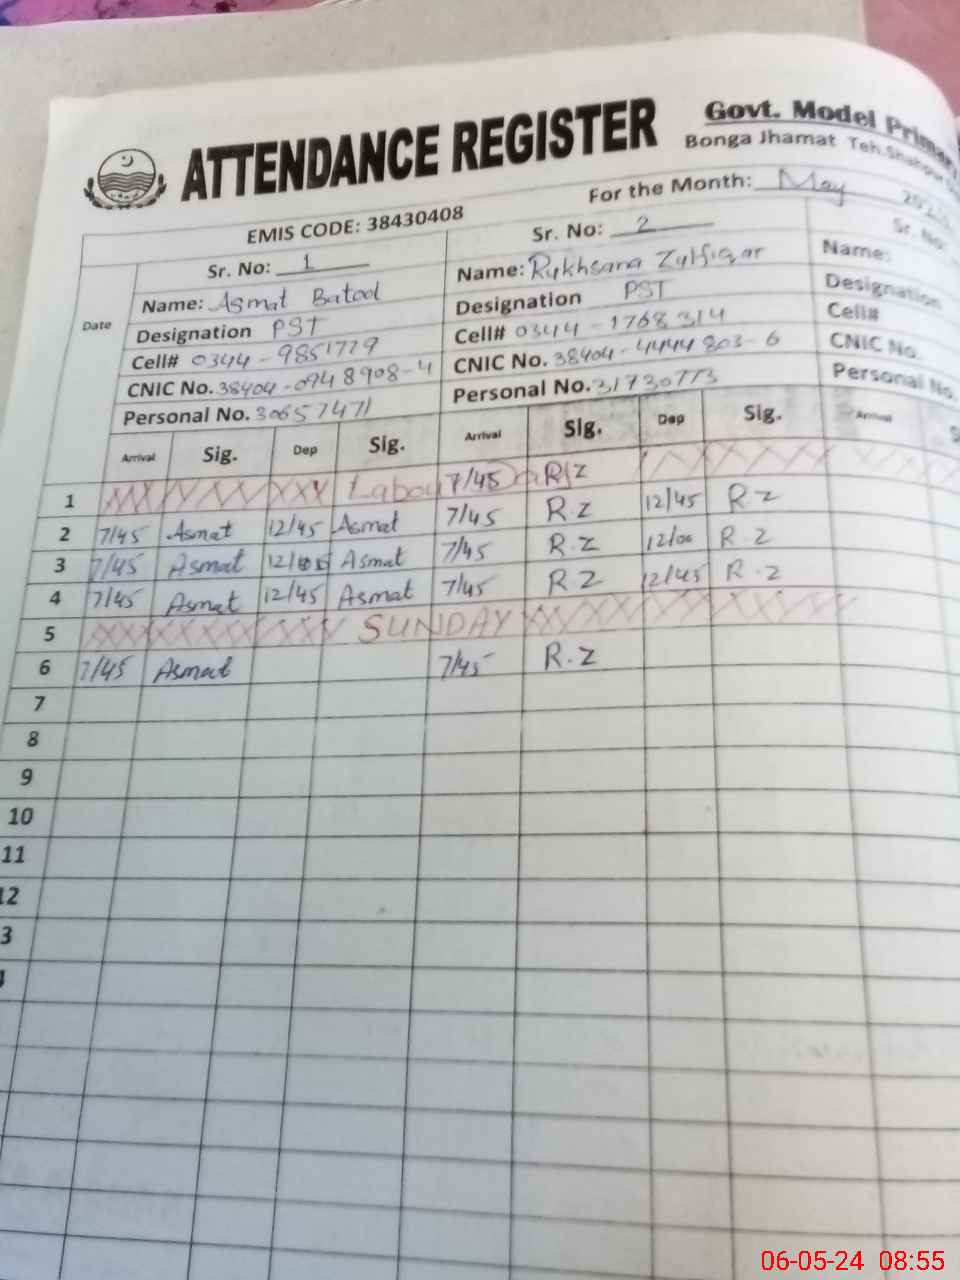 ATTENDANCE REGISTER
Govt. Model Primary
Bonga Jhamat Teh. Shahpur
EMIS CODE: 38430408
For the Month: May
Date
Sr. No: 1
Sr. No: 2
Sr. No:
Name: Asmat Batool
Name: Rukhsana Zulfiqar
Name:
Designation PST
Designation PST
Designation
Cell# 0344-9851779
Cell# 0344-1768314
Cell#
CNIC No. 38404-0948908-4
CNIC No. 38404-4444803-6
CNIC No.
Personal No. 30657471
Personal No. 31730773
Personal No.
Arrival Sig. Dep Sig. Arrival Sig. Dep Sig. Arrival
1 Labour Day 7/45 R.Z
2 7/45 Asmat 12/45 Asmat 7/45 R.Z 12/45 R.Z
3 7/45 Asmat Asmat 7/45 R.Z 12/00 R.Z
4 7/45 Asmat 12/45 Asmat 7/45 R.Z 12/45 R.Z
5 SUNDAY
6 7/45 Asmat 7/45 R.Z
7
8
9
10
11
12
3
06-05-24 08:55